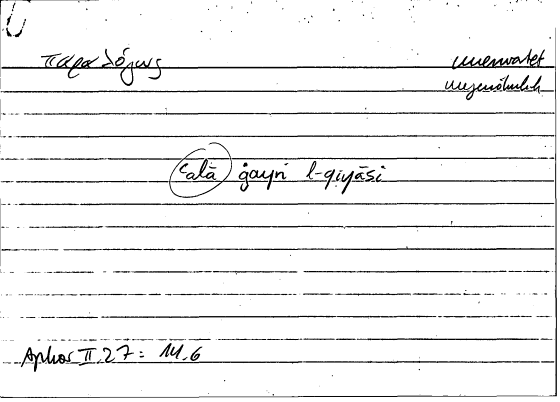 παραλόγως
unerwartet
ungewöhnlich
ʿalā ġayri l-qiyāsi
Aphor II.27: 14.6